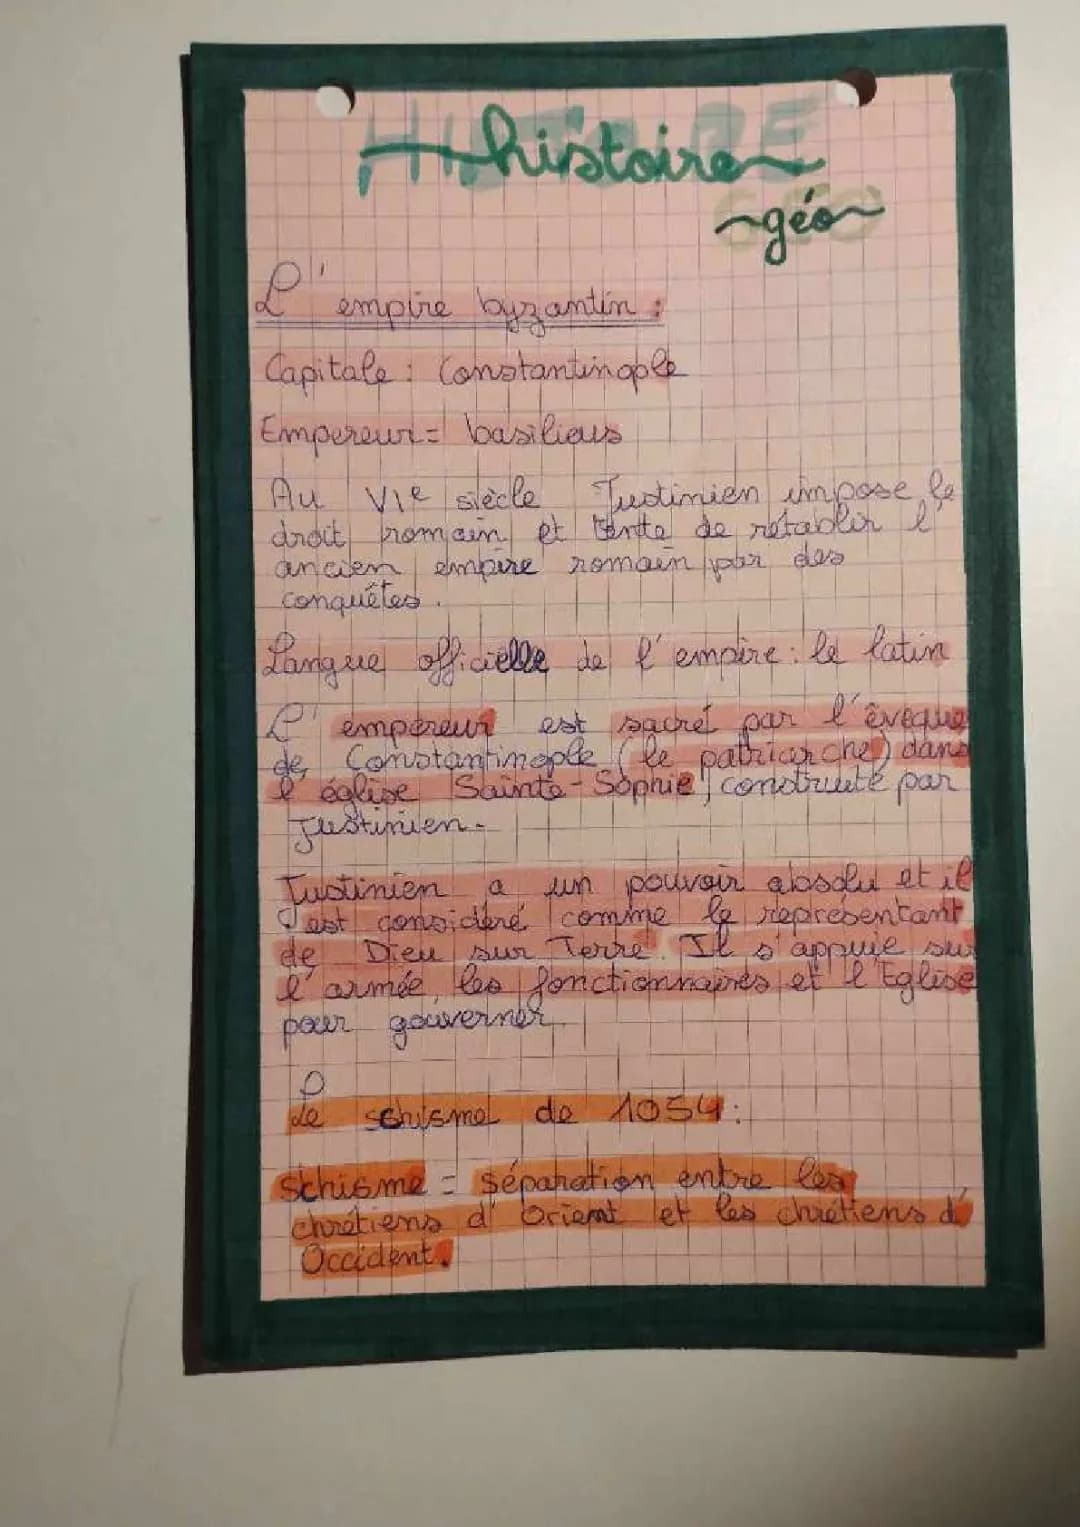 HISTOIRE
histoire
GÉO
~géo~
L'empire byzantin :
Capitale : Constantinople
Empereur = basilieus
Au VIe siècle Justinien impose le
droit romain et tente de rétablir l'
ancien empire romain par des
conquêtes.
Langue officielle de l'empire : le latin
L'empereur est sacré par l'évêque
de Constantinople (le patriarche) dans
l'église Sainte-Sophie, construite par
Justinien.
Justinien a un pouvoir absolu et il
est considéré comme le représentant
de Dieu sur Terre. Il s'appuie sur
l'armée, les fonctionnaires et l'Eglise
pour gouverner.
Le schisme de 1054 :
Schisme = séparation entre les
chrétiens d'Orient et les chrétiens d'
Occident.